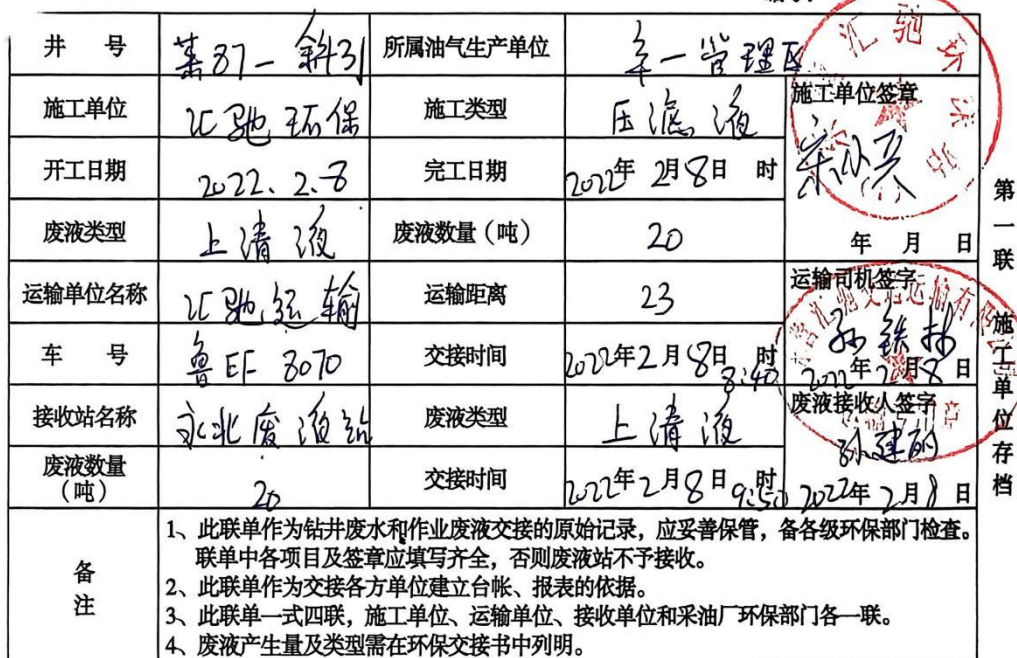 井 号 莱87-斜31 所属油气生产单位 辛一管理区
施工单位 汇驰环保 施工类型 压滤液 施工单位签章
开工日期 2022.2.8 完工日期 2022年2月8日 时
废液类型 上清液 废液数量（吨） 20 年 月 日
运输单位名称 汇驰运输 运输距离 23 运输司机签字
车 号 鲁EF 8070 交接时间 2022年2月8日 时 8:40 孙铁林 2022年2月8日
接收站名称 永北废液站 废液类型 上清液 废液接收人签字
废液数量（吨） 20 交接时间 2022年2月8日 时 9:50 2022年2月8日
备注
1、此联单作为钻井废水和作业废液交接的原始记录，应妥善保管，备各级环保部门检查。
联单中各项目及签章应填写齐全，否则废液站不予接收。
2、此联单作为交接各方单位建立台帐、报表的依据。
3、此联单一式四联，施工单位、运输单位、接收单位和采油厂环保部门各一联。
4、废液产生量及类型需在环保交接书中列明。
第一联 施工单位存档